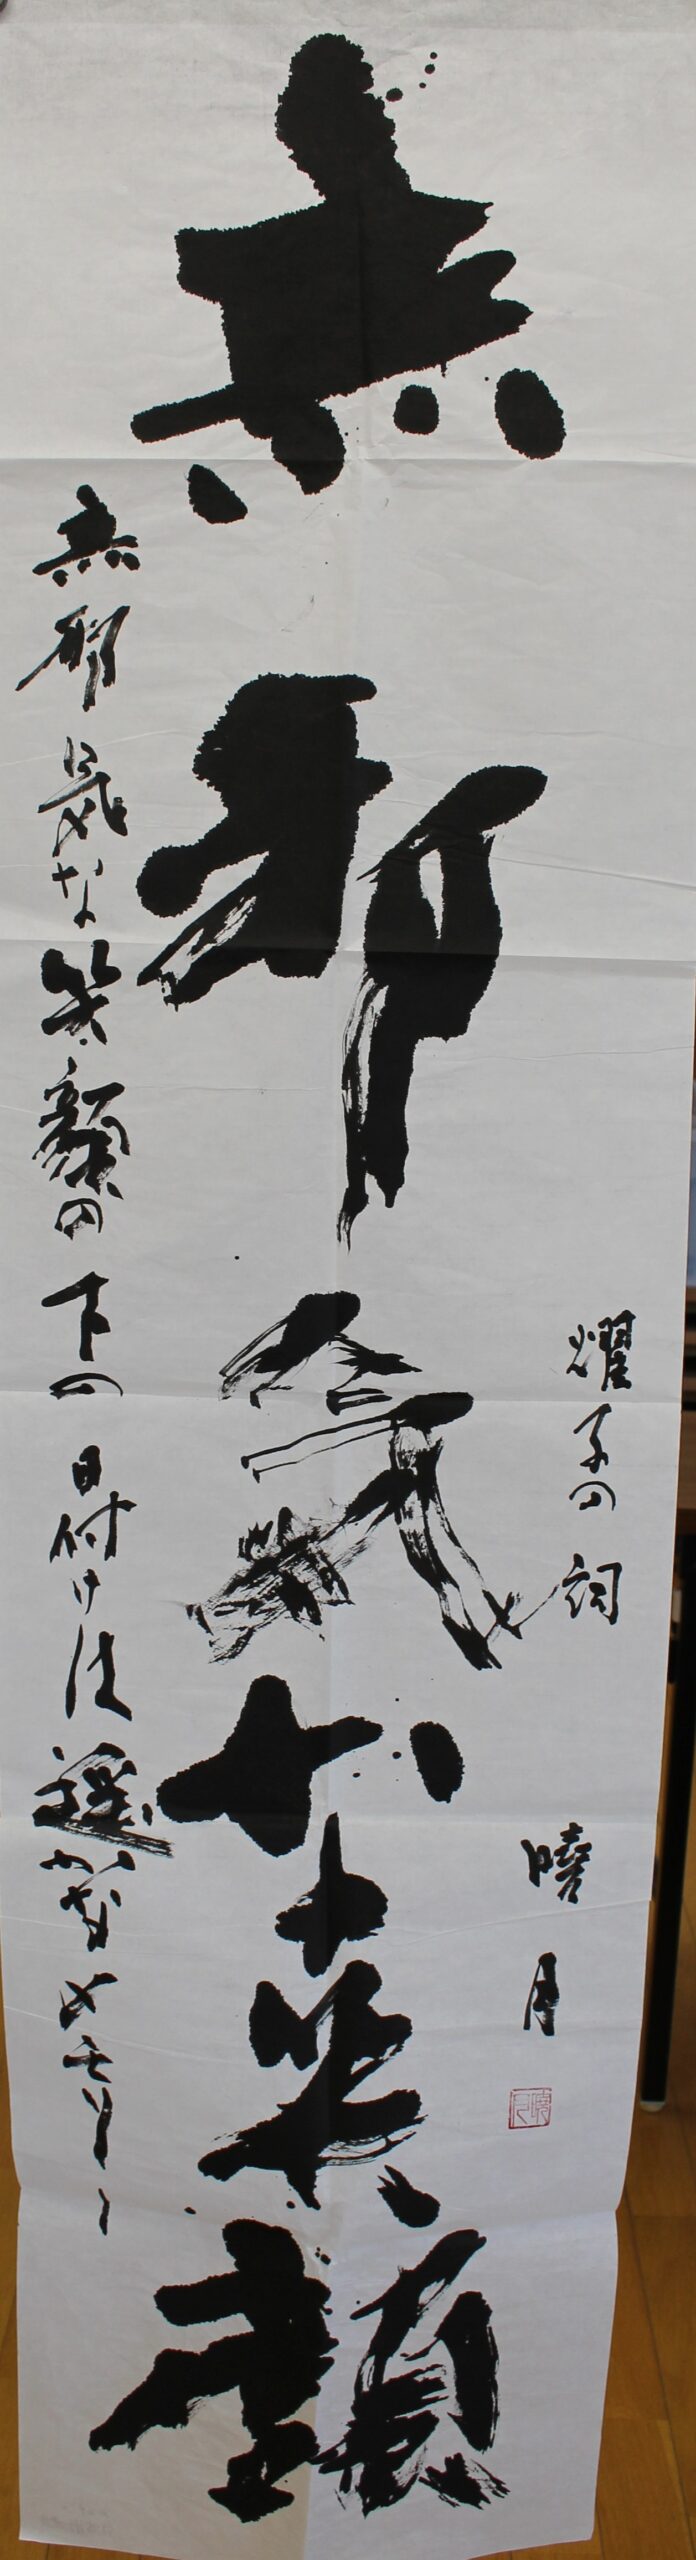 無邪気な笑顔
無邪気な笑顔の下の日付け は遥かなメモリー
耀子の詞
暁月